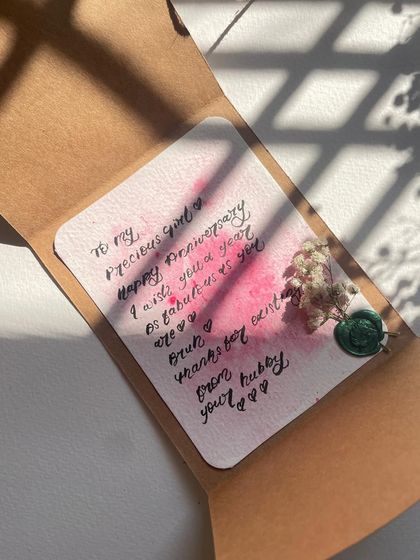 To my
precious girl ♡
Happy Anniversary
I wish you a year
as fabulous as you
are ♡ ♡
Bruh ♡
thanks for existing
from
your hubby
♡ ♡ ♡